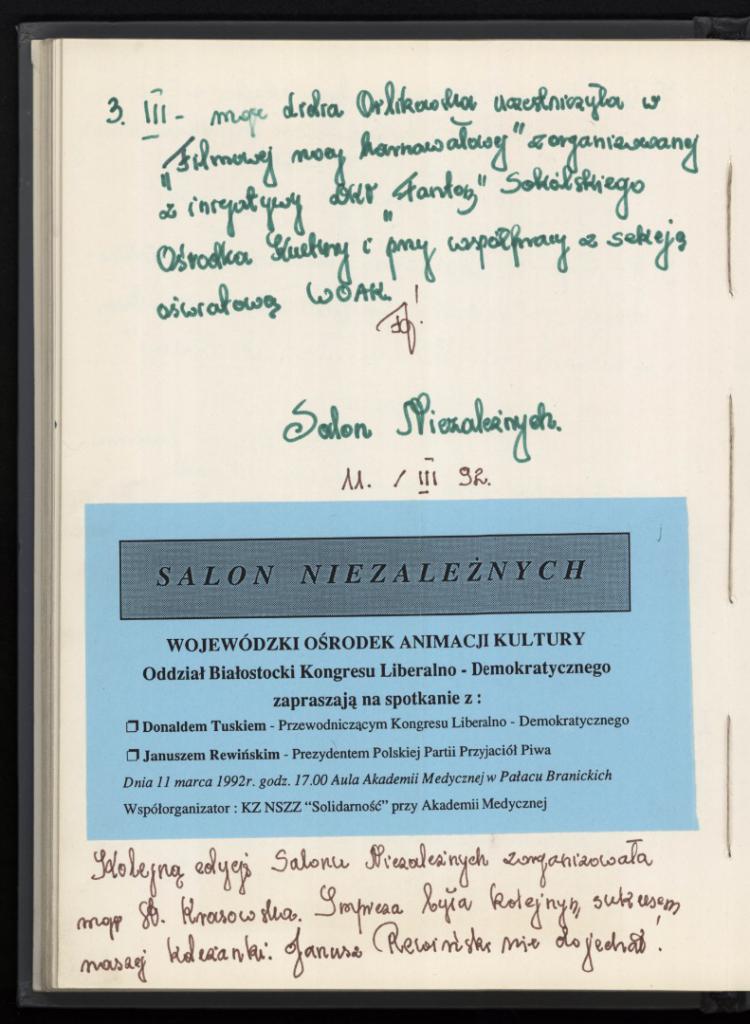 3. III - mgr Lidia Orlikowska uczestniczyła w
"Filmowej nocy karnawałowej" zorganizowanej
z inicjatywy DKF "Fantom" Sokólskiego
Ośrodka Kultury i przy współpracy z sekcją
oświatową WOAK.
Salon Niezależnych.
11. / III 92.
SALON NIEZALEŻNYCH
WOJEWÓDZKI OŚRODEK ANIMACJI KULTURY
Oddział Białostocki Kongresu Liberalno - Demokratycznego
zapraszają na spotkanie z :
❒ Donaldem Tuskiem - Przewodniczącym Kongresu Liberalno - Demokratycznego
❒ Januszem Rewińskim - Prezydentem Polskiej Partii Przyjaciół Piwa
Dnia 11 marca 1992r. godz. 17.00 Aula Akademii Medycznej w Pałacu Branickich
Współorganizator : KZ NSZZ "Solidarność" przy Akademii Medycznej
Kolejną edycję Salonu Niezależnych zorganizowała
mgr B. Krasowska. Impreza była kolejnym sukcesem
naszej koleżanki. Janusz Rewiński nie dojechał!